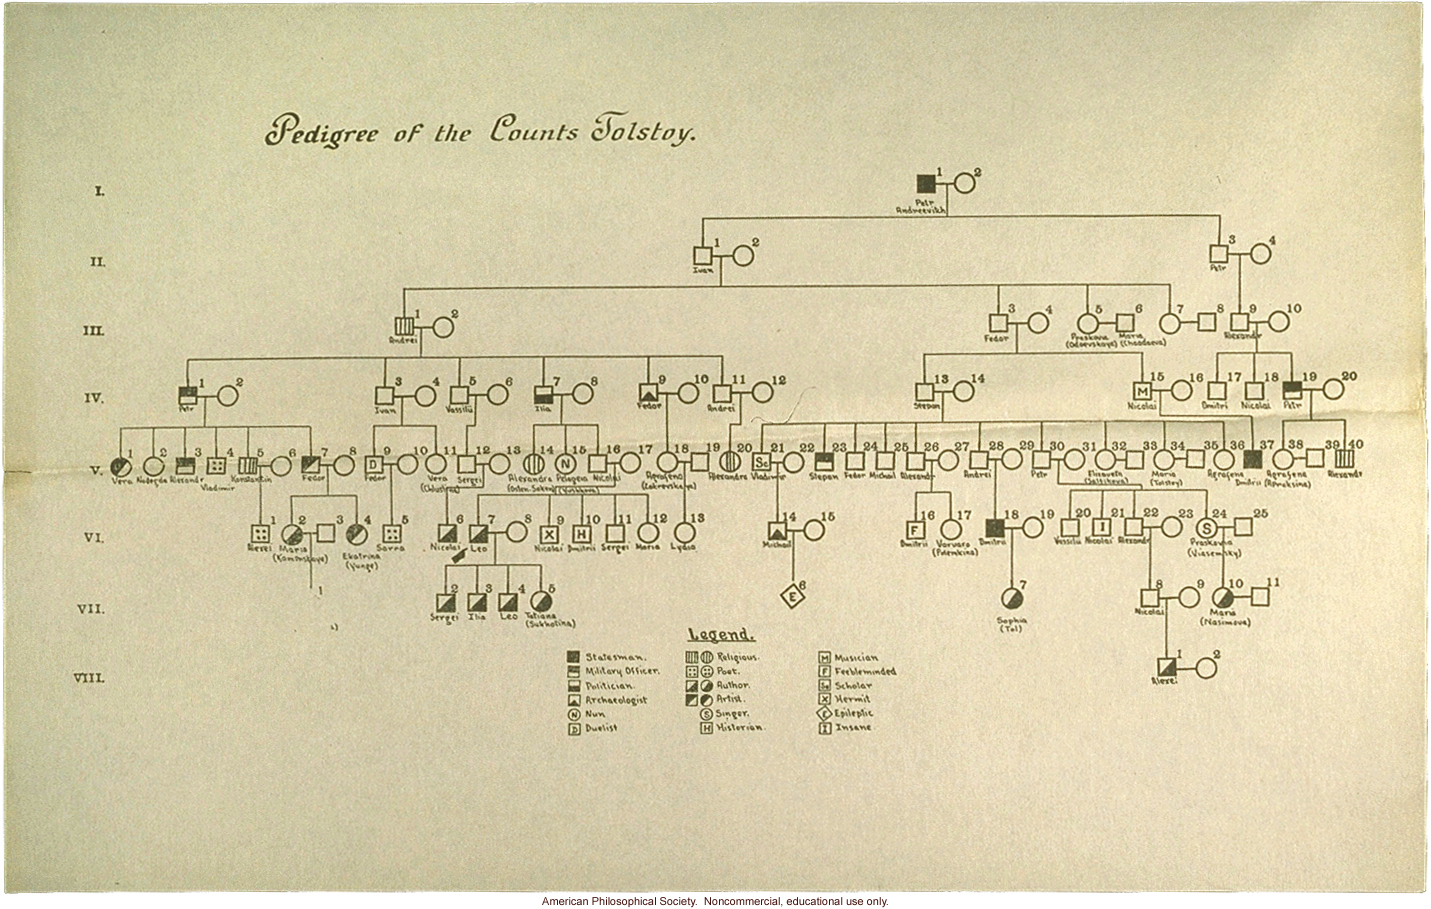 Pedigree of the Counts Tolstoy.
I.
1 2
Petr
Andreevitch
II.
1 2 3 4
Ivan Petr
III.
1 2 3 4 5 6 7 8 9 10
Andrei Fedor Praskovia Maria Alexandr
(Chaadaeva)
IV.
1 2 3 4 5 6 7 8 9 10 11 12 13 14 15 16 17 18 19 20
M
Petr Ivan Vassilii Ilia Fedor Andrei Stepan Nicolai Dmitri Nicolai Petr
V.
1 2 3 4 5 6 7 8 9 10 11 12 13 14 15 16 17 18 19 20 21 22 23 24 25 26 27 28 29 30 31 32 33 34 35 36 37 38 39 40
D N Sc
Vera Nadegda Alexandr Vladimir Konstantin Fedor Fedor Vera Sergei Alexandra Pelageia Nicolai Agrafena Alexandra Vladimir Stepan Fedor Michail Alexandr Andrei Petr Elizaveta Maria Agrafena Dmitrii Agrafena Alexandr
(Osten-Saken) (Yushkova) (Zakrevskaya) (Saltikova) (Tolstoy) (Apraksina)
VI.
1 2 3 4 5 6 7 8 9 10 11 12 13 14 15 16 17 18 19 20 21 22 23 24 25
X H F I S
Alexei Maria Ekatrina Savva Nicolai Leo Nicolai Dmitrii Sergei Maria Lydia Michail Dmitrii Varvara Dmitrii Vassilii Nicolai Alexandr Praskovia
(Kamenskaya) (Yunge) (Potemkina) (Viasemsky)
VII.
1 2 3 4 5 6 7 8 9 10 11
E
Sergei Ilia Leo Tatiana Sophia Nicolai Maria
(Sukhotina) (Tol) (Nasimova)
VIII.
1 2
Alexei
Legend.
Statesman.
Military Officer.
Politician.
Archaeologist
N Nun
D Duelist
Religious.
Poet.
Author.
Artist.
S Singer.
H Historian.
M Musician
F Feebleminded
Sc Scholar
X Hermit
E Epileptic
I Insane
American Philosophical Society. Noncommercial, educational use only.